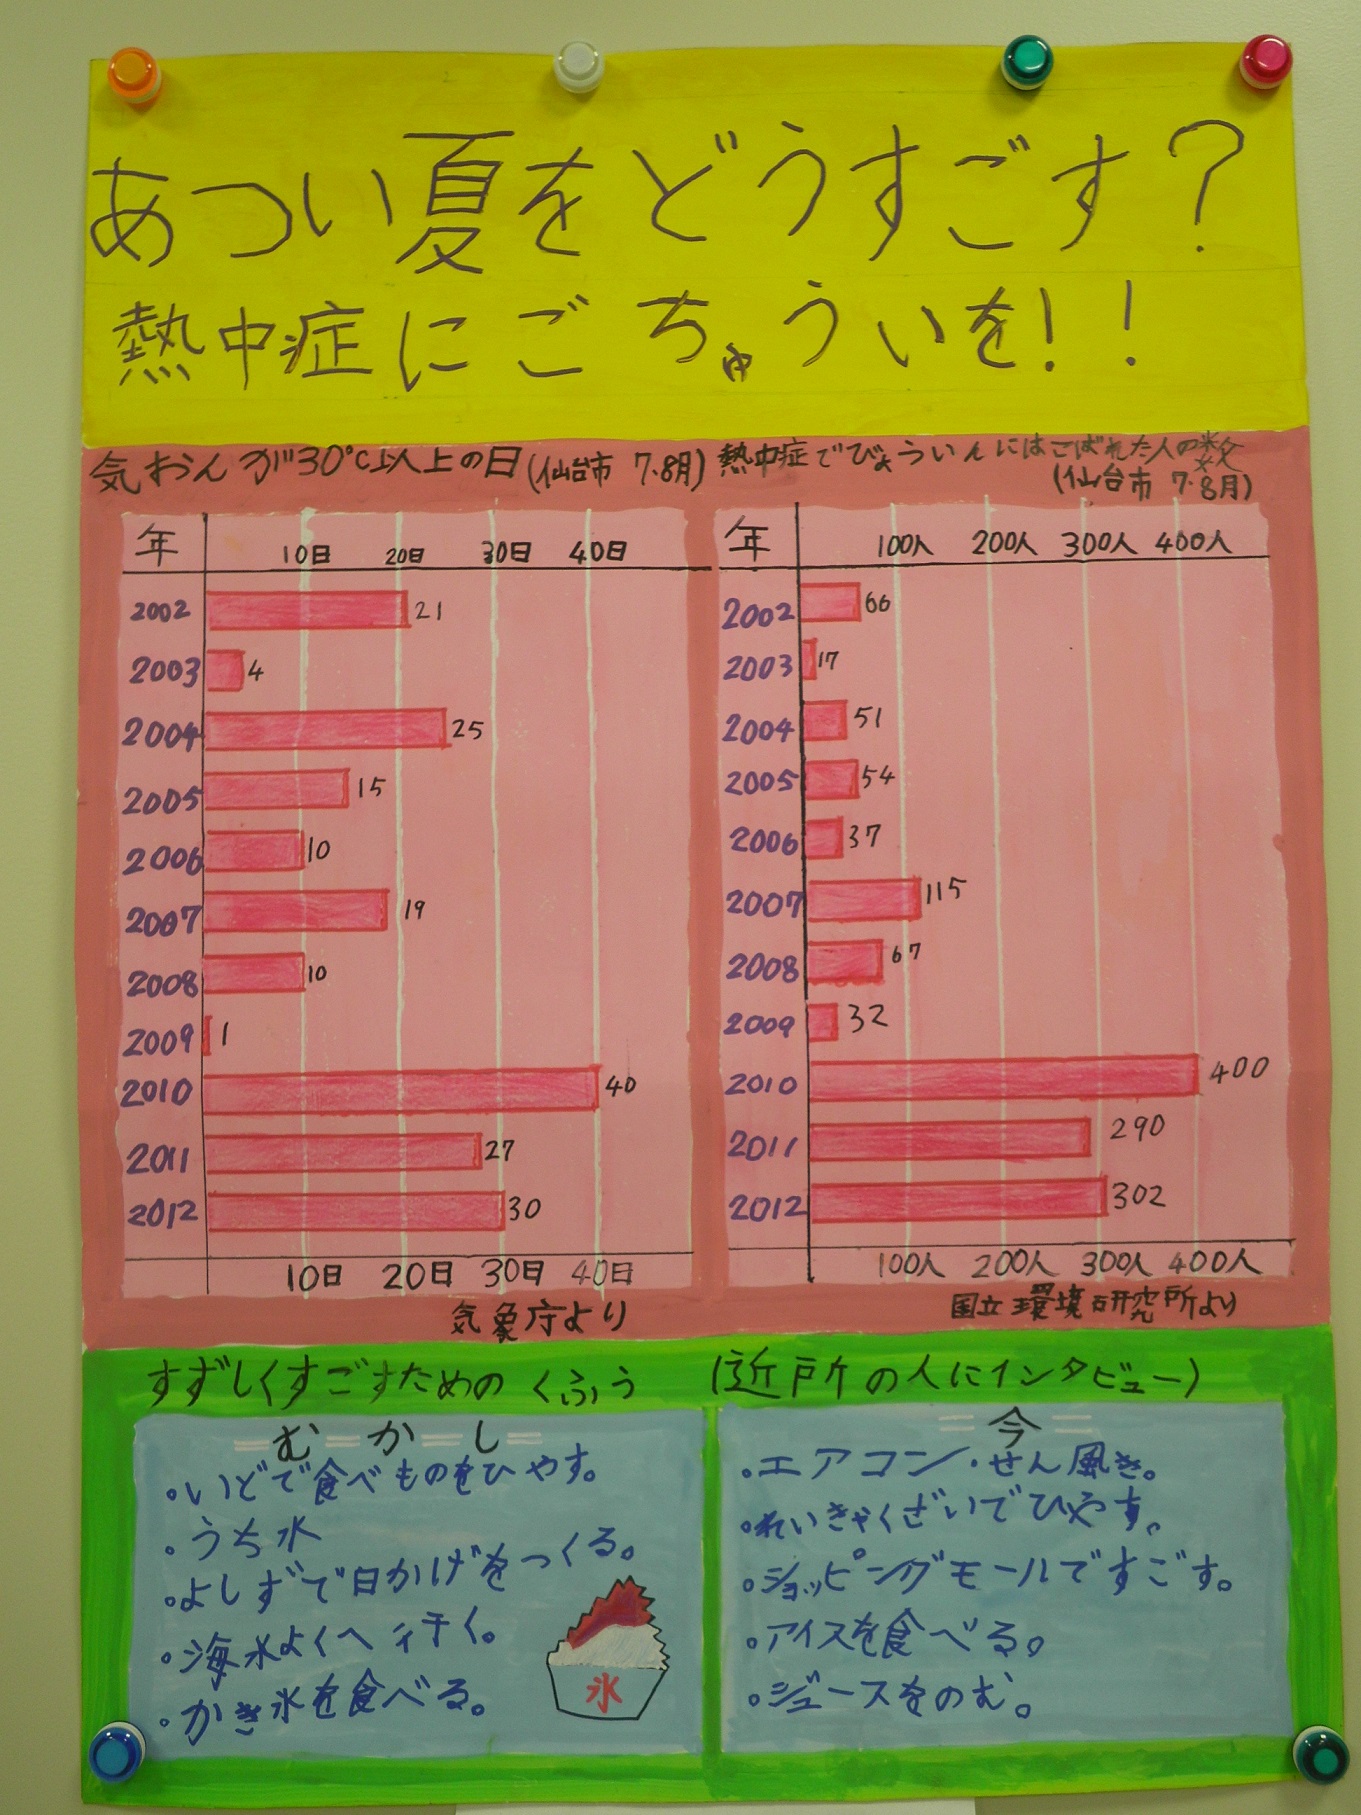 あつい夏をどうすごす?
熱中症にごちゅういを!!
気おんが30℃以上の日(仙台市 7・8月)
年
10日 20日 30日 40日
2002 21
2003 4
2004 25
2005 15
2006 10
2007 19
2008 10
2009 1
2010 40
2011 27
2012 30
10日 20日 30日 40日
気象庁より
熱中症でびょういんにはこばれた人の数
(仙台市 7・8月)
年
100人 200人 300人 400人
2002 66
2003 17
2004 51
2005 54
2006 37
2007 115
2008 67
2009 32
2010 400
2011 290
2012 302
100人 200人 300人 400人
国立環境研究所より
すずしくすごすためのくふう (近所の人にインタビュー)
むかし
・いどで食べものをひやす。
・うち水
・よしずで日かげをつくる。
・海水よくへ行く。
・かき氷を食べる。
氷
今
・エアコン・せん風き。
・れいきゃくざいでひやす。
・ショッピングモールですごす。
・アイスを食べる。
・ジュースをのむ。